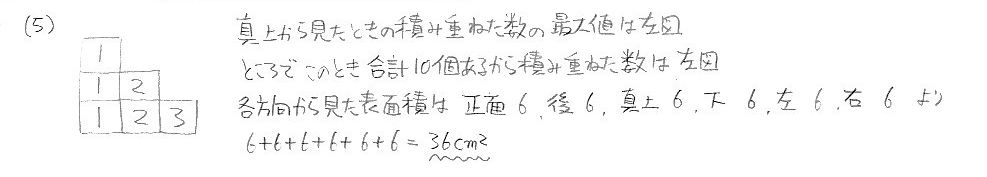 (5)
真上から見たときの積み重ねた数の最大値は左図
ところでこのとき合計10個あるから積み重ねた数は左図
各方向から見た表面積は 正面6, 後6, 真上6, 下6, 左6, 右6 より
6+6+6+6+6+6=36cm²
1
1 2
1 2 3